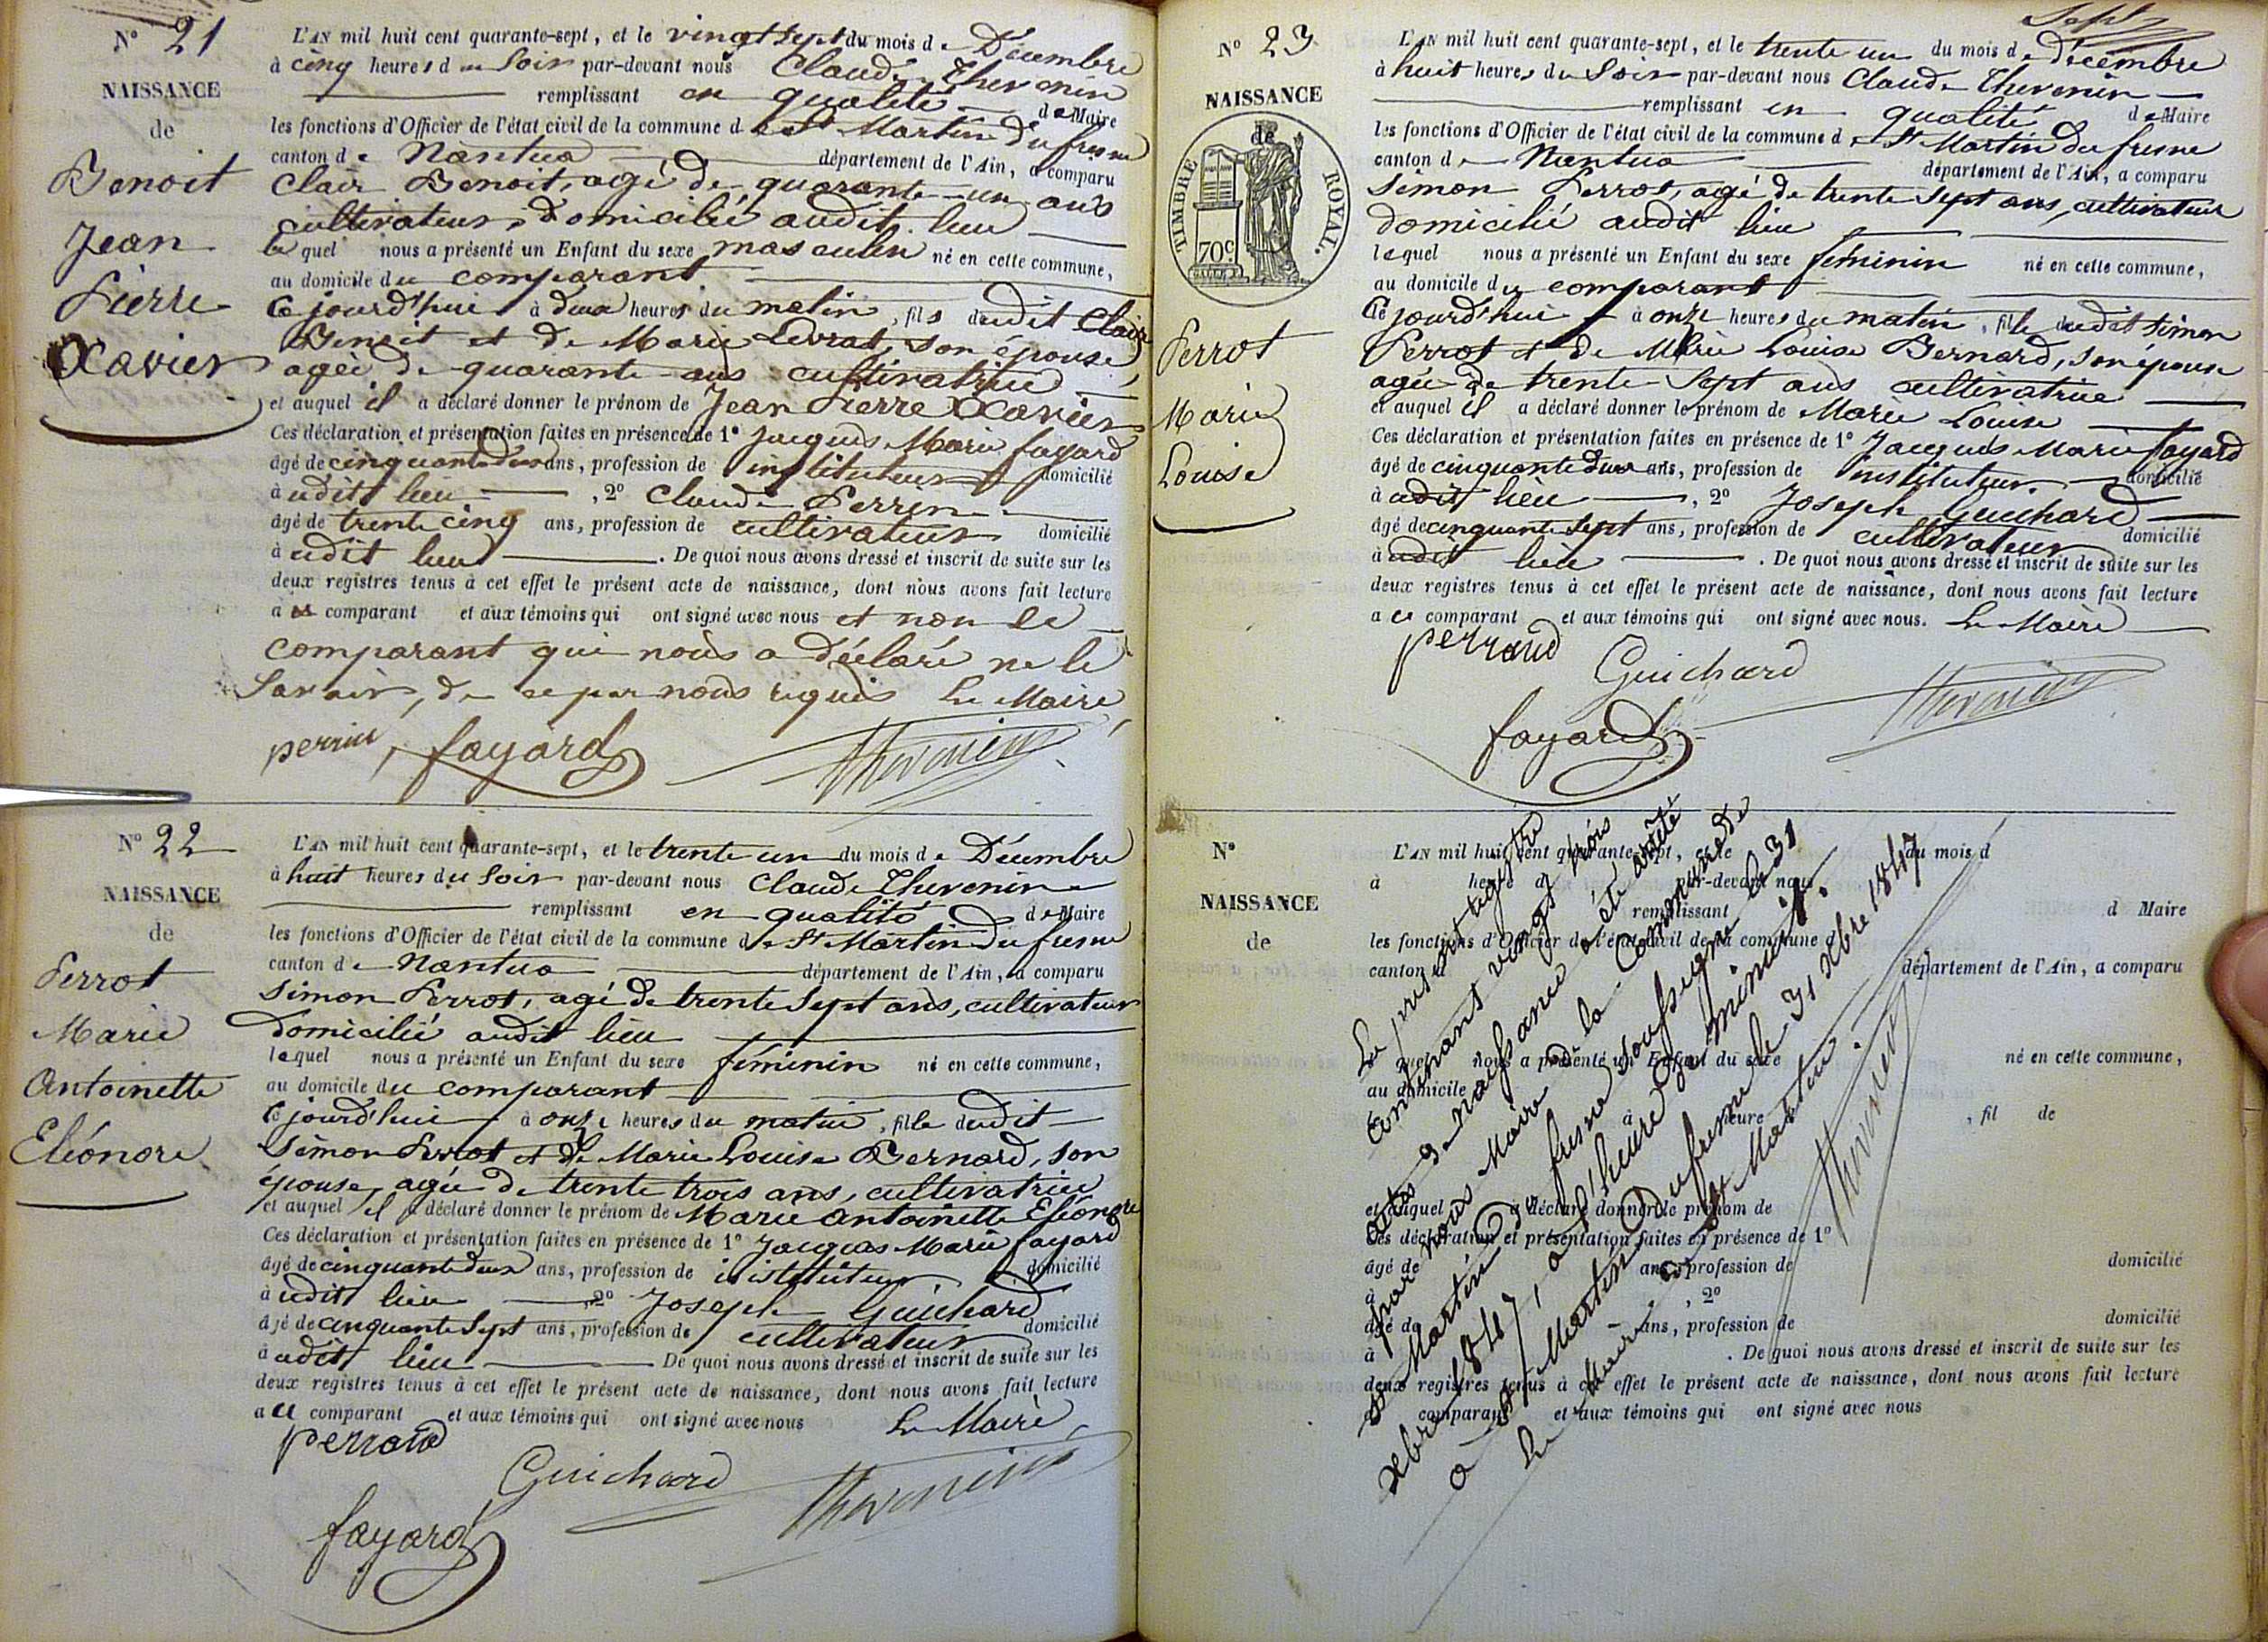 N° 21
NAISSANCE
de
Benoit
Jean
Pierre
Xavier
L'AN mil huit cent quarante-sept, et le vingt sept du mois de Décembre
à cinq heures du Soir par-devant nous Claude Thevenin
remplissant en qualité de Maire
les fonctions d'Officier de l'état civil de la commune de St Martin du fresne
canton de Nantua département de l'Ain, a comparu
Clair Benoit, agé de quarante-un ans
cultivateur, domicilié audit lieu
lequel nous a présenté un Enfant du sexe masculin né en cette commune,
au domicile du comparant
Ce jourd'hui à deux heures du matin, fils dudit Clair
Benoit et de Marie Levrat, son épouse,
agée de quarante ans cultivatrice
et auquel il a déclaré donner le prénom de Jean Pierre Xavier
Ces déclaration et présentation faites en présence de 1° Jacques Marie fayard
âgé de cinquante deux ans, profession de instituteur domicilié
à udit lieu , 2° Claude Perrin
âgé de trente cinq ans, profession de cultivateur domicilié
à udit lieu . De quoi nous avons dressé et inscrit de suite sur les
deux registres tenus à cet effet le présent acte de naissance, dont nous avons fait lecture
a comparant et aux témoins qui ont signé avec nous et non le
comparant qui nous a déclaré ne le
Savoir, de ce par nous requis Le Maire,
perrin fayard Thevenin
N° 22
NAISSANCE
de
Perrot
Marie
Antoinette
Eléonore
L'AN mil huit cent quarante-sept, et le trente un du mois de Décembre
à huit heures du Soir par-devant nous Claude Thevenin
remplissant en qualité de Maire
les fonctions d'Officier de l'état civil de la commune de St Martin Du fresne
canton de Nantua département de l'Ain, a comparu
Simon Perrot, agé de trente Sept ans, cultivateur
Domicilié audit lieu
lequel nous a présenté un Enfant du sexe féminin né en cette commune,
au domicile du comparant
Ce jourd'hui à onze heures du matin, fille dudit
Simon Perrot et de Marie Louise Bernard, son
épouse, agée de trente trois ans, cultivatrice
et auquel il a déclaré donner le prénom de Marie Antoinette Eléonore
Ces déclaration et présentation faites en présence de 1° Jacques Marie fayard
âgé de cinquante deux ans, profession de instituteur domicilié
à udit lieu 2° Joseph Guichard
âgé de cinquante Sept ans, profession de cultivateur domicilié
à udit lieu De quoi nous avons dressé et inscrit de suite sur les
deux registres tenus à cet effet le présent acte de naissance, dont nous avons fait lecture
a ce comparant et aux témoins qui ont signé avec nous Le Maire,
perraud
Guichard Thevenin
fayard
N° 23
NAISSANCE
de
TIMBRE ROYAL.
70c
Perrot
Marie
Louise
L'AN mil huit cent quarante-sept, et le trente un du mois de Décembre
à huit heures du Soir par-devant nous Claude Thevenin
remplissant en qualité de Maire
les fonctions d'Officier de l'état civil de la commune de St Martin du fresne
canton de Nantua département de l'Ain, a comparu
Simon Perrot, agé de trente Sept ans, cultivateur
domicilié audit lieu
lequel nous a présenté un Enfant du sexe féminin né en cette commune,
au domicile du comparant
Ce jourd'hui à onze heures du matin, fille dudit Simon
Perrot et de Marie Louise Bernard, son épouse
agée de trente Sept ans cultivatrice
et auquel il a déclaré donner le prénom de Marie Louise
Ces déclaration et présentation faites en présence de 1° Jacques Marie fayard
âgé de cinquante deux ans, profession de instituteur. domicilié
à udit lieu , 2° Joseph Guichard
âgé de cinquante Sept ans, profession de cultivateur domicilié
à udit lieu . De quoi nous avons dressé et inscrit de suite sur les
deux registres tenus à cet effet le présent acte de naissance, dont nous avons fait lecture
a ce comparant et aux témoins qui ont signé avec nous. Le Maire
perraud Guichard
fayard Thevenin
N°
NAISSANCE
de
L'AN mil huit cent quarante-sept, et le du mois d
à heure d par-devant nous
remplissant d Maire
les fonctions d'Officier de l'état civil de la commune d
canton d département de l'Ain, a comparu
quel nous a présenté un Enfant du sexe né en cette commune,
au domicile
à heure , fil de
et auquel a déclaré donner le prénom de
Ces déclaration et présentation faites en présence de 1°
âgé de ans, profession de domicilié
à , 2°
âgé de ans, profession de domicilié
à . De quoi nous avons dressé et inscrit de suite sur les
deux registres tenus à cet effet le présent acte de naissance, dont nous avons fait lecture
a comparant et aux témoins qui ont signé avec nous
Le présent registre
Contenant vingt trois
actes de naissance a été arrêté
par nous Maire de la Commune de
St Martin Du fresne soussigné le 31
Xbre 1847, à l'heure de minuit.
à St Martin Du fresne le 31 Xbre 1847
Le Maire de St Martin.
Thevenin